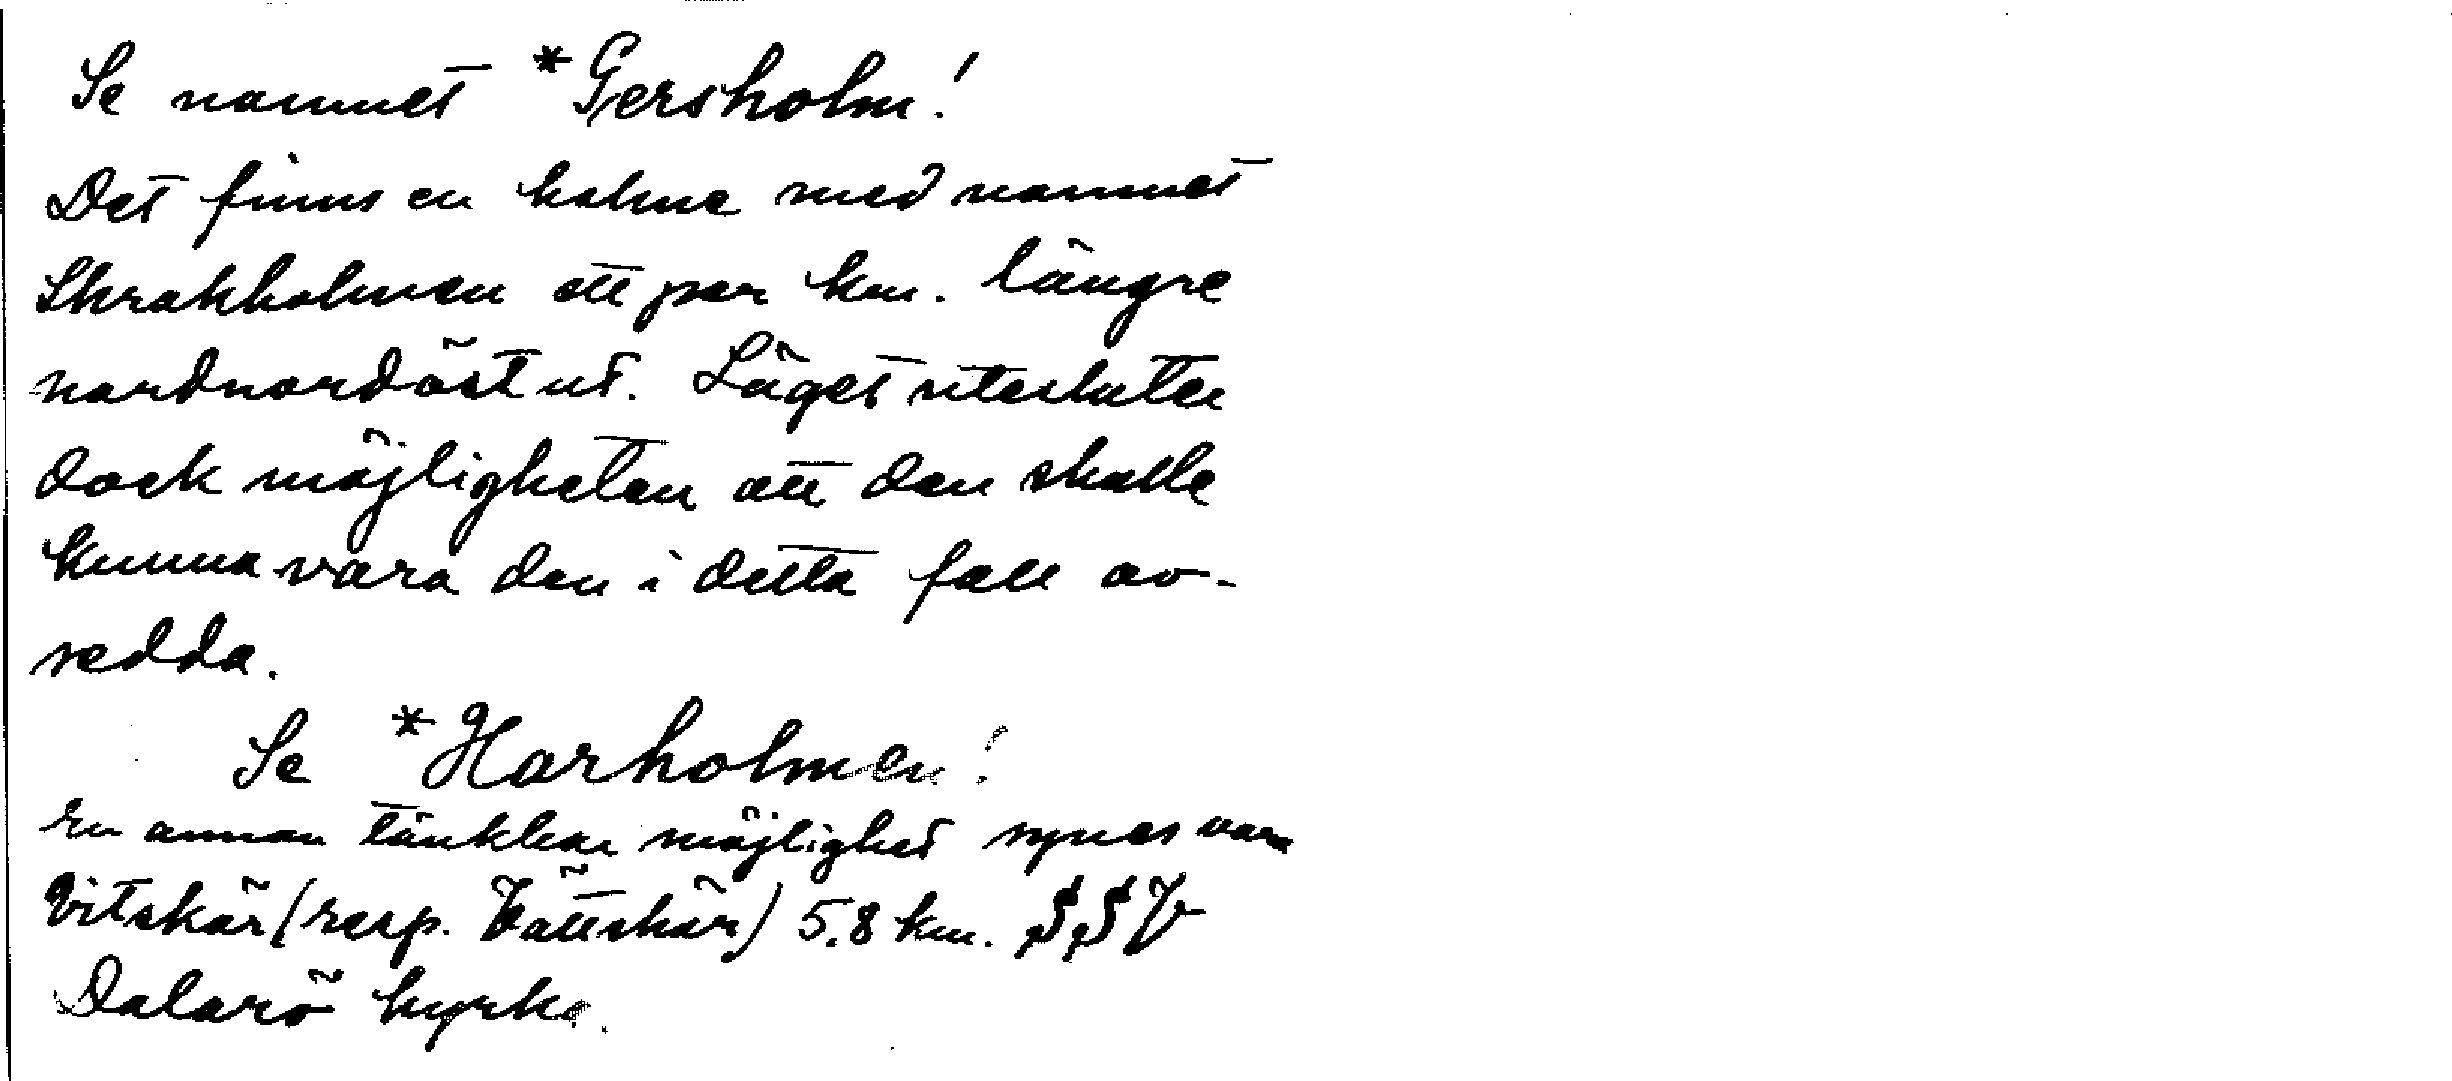 Se namnet *Gersholm!
Det finns en holme med namnet
Skrakholmen ett par km. längre
nordnordöst ut. Läget utesluter
dock möjligheten att den skulle
kunna vara den i detta fall av-
sedda.
Se *Harholmen!
En annan tänkbar möjlighet synes vara
Vitskär (resp. Vättskär) 5,8 km. SSV
Dalarö kyrka.